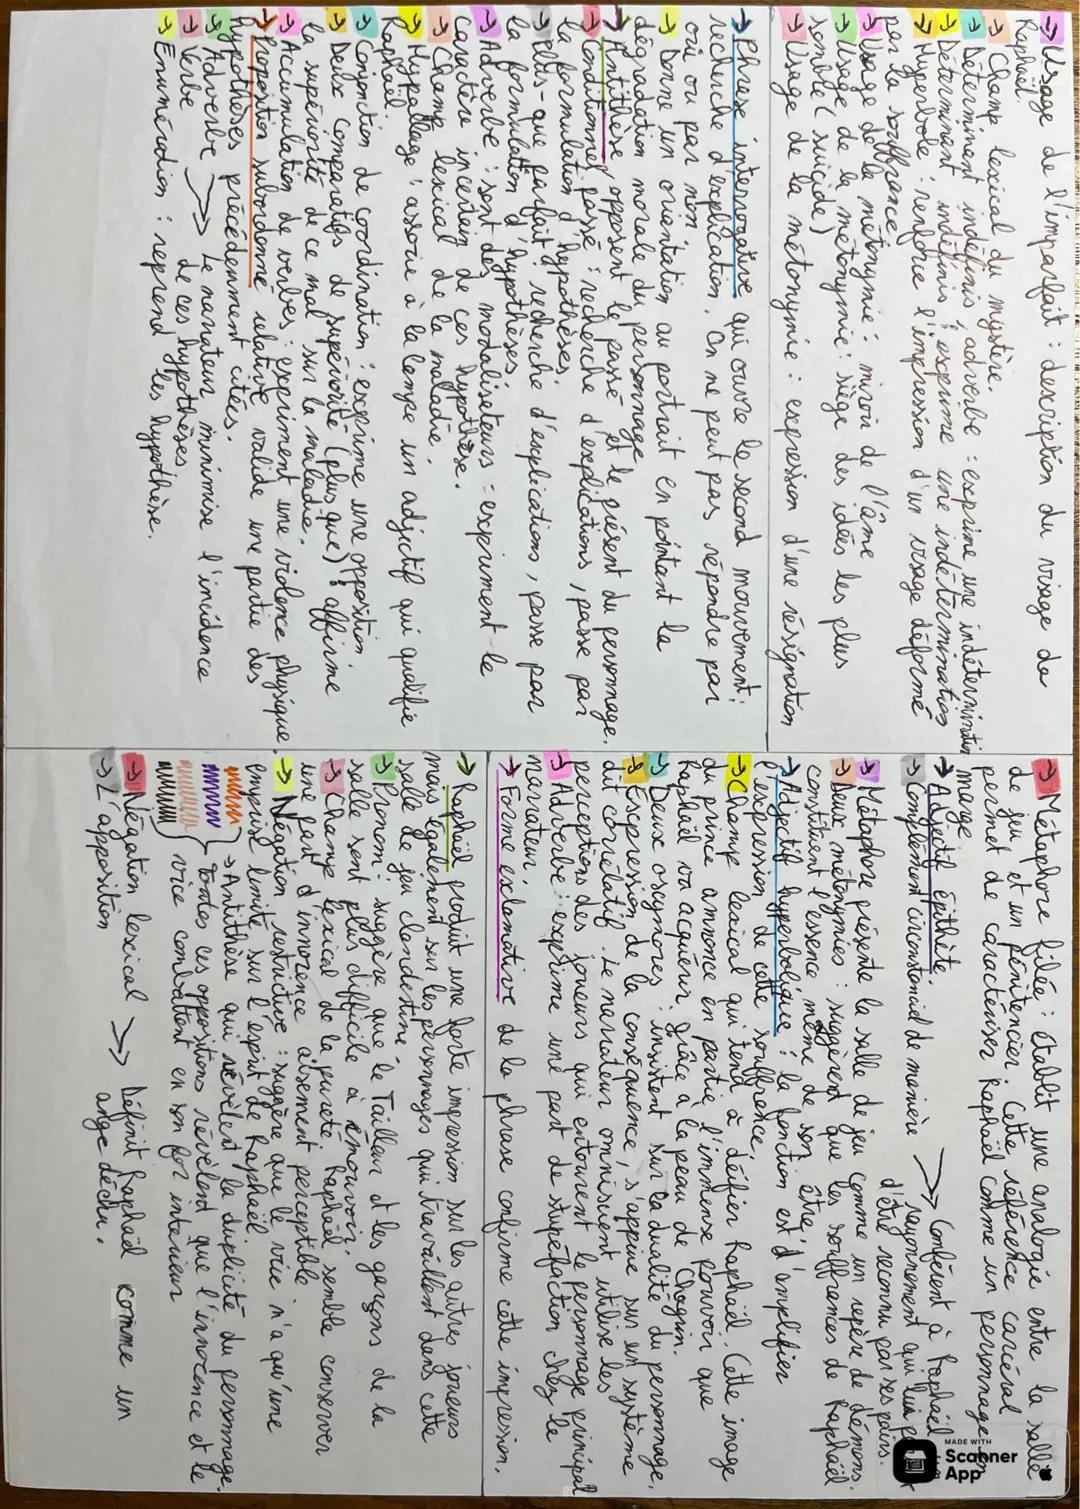 → Usage de l'imparfait : description du visage de
Raphaël.
→ Champ lexical du mystère.
→ Déterminent indéfinis / adverbe : exprime une indétermination
→ Déterminant indéfinis : exprime une indétermination
→ Hyperbole : renforce l'impression d'un visage déformé
par la souffrance
→ Usage de la métonymie : miroir de l'âme
→ Usage de la métonymie : siège des idées les plus
sombre (suicide)
→ Usage de la métonymie : expression d'une résignation
→ Phrase interrogative qui ouvre le second mouvement :
recherche d'explication. On ne peut pas répondre par
oui ou par non.
→ Donne un orientation au portrait en pointant la
dégradation morale du personnage.
→ Antithèse opposent le passé et le présent du personnage.
→ Conditionnel passé : recherche d'explications, passe par
la formulation d'hypothèses.
→ Plus-que parfait : recherche d'explications, passe par
la formulation d'hypothèses.
→ Adverbe : sont des modalisateurs = expriment le
caractère incertain de ces hypothèse.
→ Champ lexical de la maladie.
→ Hypallage : associe à la lampe un adjectif qui qualifie
Raphaël.
→ Conjonction de coordination : exprime une opposition.
→ Deux comparatifs de supériorité (plus que) : affirme
la supériorité de ce mal sur la maladie.
→ Accumulation de verbes : expriment une violence physique.
→ Proposition subordonne relative valide une partie des
hypothèses précédemment citées.
→ Adverbe
→ Verbe → Le narrateur minimise l'incidence
de ces hypothèses.
→ Enumération : reprend les hypothèse.
→ Métaphore filée : établit une analogie entre la salle
de jeu et un pénitencier. Cette référence carcéral
permet de caractériser Raphaël comme un personnage en
marge
→ Adjectif épithète
→ Complément circonstanciel de manière → Confèrent à Raphaël un
rayonnement qui lui
d'être reconnu par ses pairs.
→ Métaphore présente la salle de jeu comme un repère de démons.
→ Deux métonymies : suggèrent que les souffrances de Raphaël
constituent l'essence même de son être.
→ Adjectif hyperbolique : la fonction est d'amplifier
l'expression de cette souffrance.
→ Champ lexical qui tend à déifier Raphaël. Cette image
du prince annonce en partie l'immense pouvoir que
Raphaël va acquérir grâce à la peau de Chagrin.
→ Deux oxymores : insistent sur la dualité du personnage.
→ Expression de la conséquence, s'appuie sur un système
dit corrélatif. Le narrateur omniscient utilise les
perceptions des joueurs qui entourent le personnage principal
→ Adverbe : exprime une part de stupéfaction chez le
narrateur.
→ Forme exclamative de la phrase confirme cette impression.
→ Raphaël produit une forte impression sur les autres joueurs
mais également sur les personnages qui travaillent dans cette
salle de jeu clandestine.
→ Pronom : suggère que le Tailleur et les garçons de la
salle sont plus difficile à émouvoir.
→ Champ lexical de la pureté. Raphaël semble conserver
une part d'innocence aisement perceptible
→ Négation restrictive : suggère que le vice n'a qu'une
emprise limité sur l'esprit de Raphaël.
→ Antithèse qui révèlent la duplicité du personnage.
Toutes ces oppositions révèlent que l'innocence et le
vice combattent en son for interieur
→ Négation lexical
→ L'apposition → Définit Raphaël comme un
ange déchu.
MADE WITH
Scanner
App